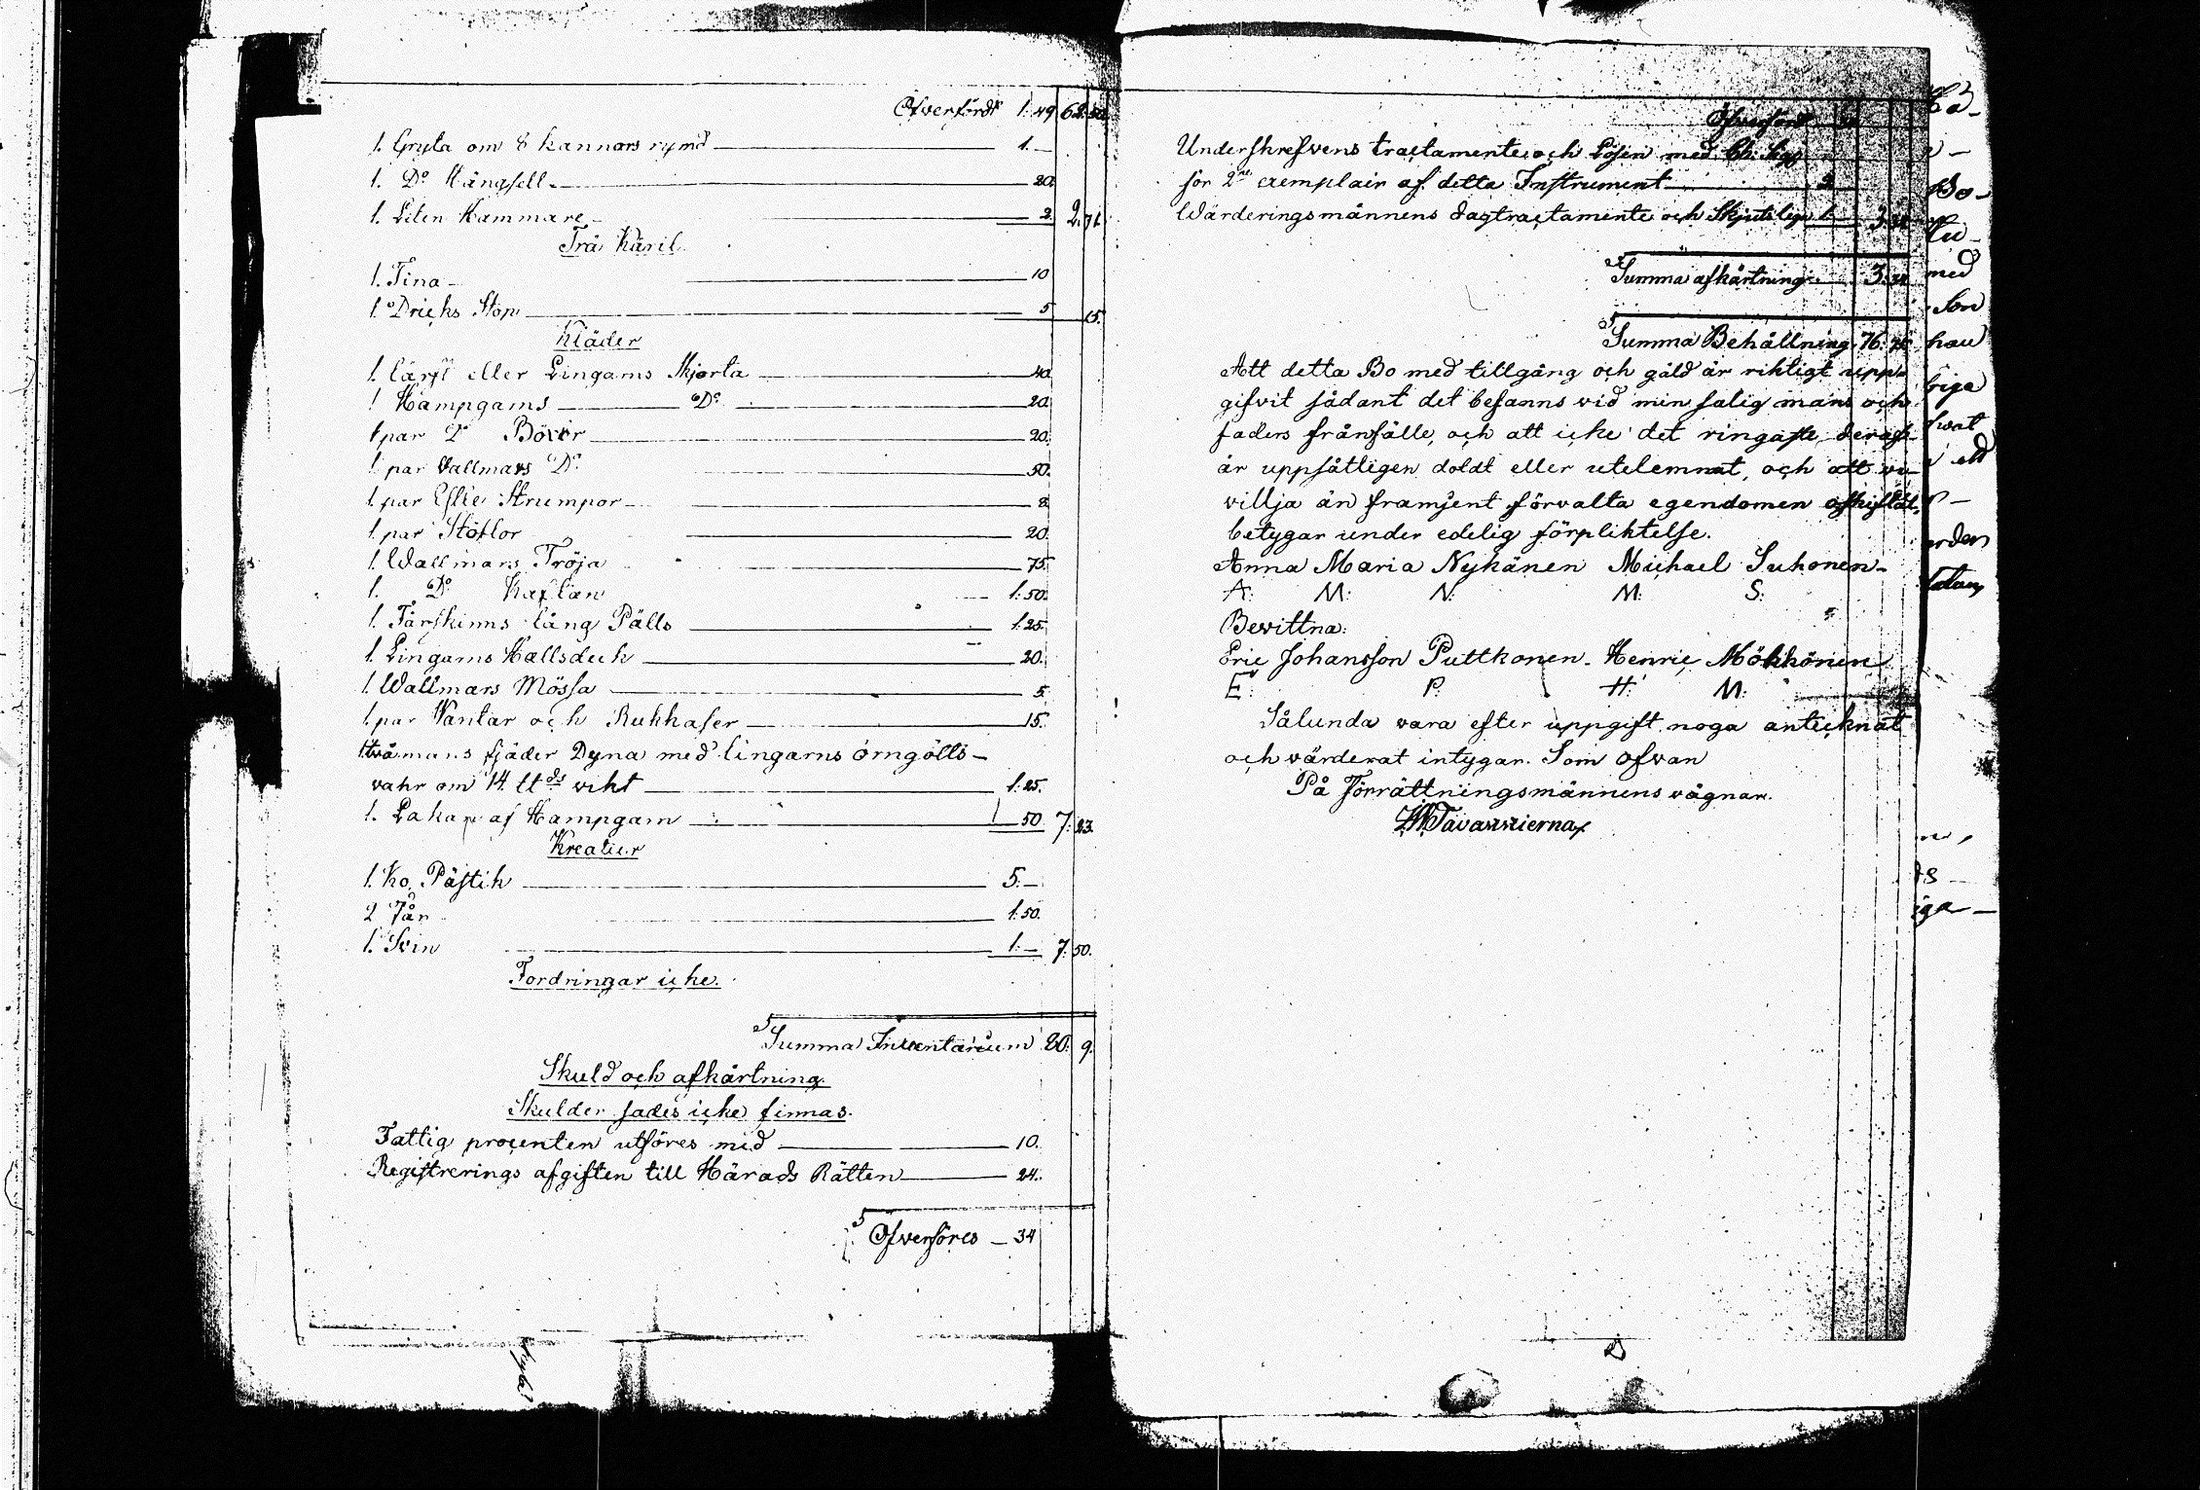 Öfverfördt 1: 49 62. 50
1. Gryta om 8 kannors rymd 1.—
1. Do Hängsell 20.
1. Liten Hammare 2. 2. 71.
Trä Käril
1. Tina 10
1. Dricks Stop 5 15.
Kläder
1. Lärft eller Lingarns Skjorta 40.
1 Hampgarns Do 20.
1 par Do Böxor 20.
1 par Vallmars Do 50.
1 par Strumpor 8
1 par Stöflor 20.
1. Wallmars Tröja 75.
1. Do Kaftan 1:50.
1. Fårskinns lång Pälls 1.25.
1. Lingarns Hallsduk 20.
1. Wallmars Mössa 5.
1. par Vantar och Rukkaser 15.
1 tvåmans fjäder Dyna med lingarns örngötts-
vahr om 14 wikt 1:25.
1. Lakan af Hampgarn 50. 7: 23.
Kreatur
1. Ko, Pästik 5.—
2 Får 1.50.
1. Svin 1.— 7. 50.
Fordringar icke.
Summa Inventarium 80. 9.
Skuld och afkårtning.
Skulder sades icke finnas.
Fattig procenten utföres med 10.
Registrerings afgiften till Härads Rätten 24.
Öfverföres — 34
Öfverfördt
Underskrefvens tractamente och Lösen med
för 2ne exemplair af detta Instrument 2
Wärderingsmännens dagtractamente och Skjutslega 1. 3. 34
Summa afkårtning 3. 34
Summa Behållning 76. 75
Att detta Bo med tillgång och gäld är riktigt upp-
gifvit sådant det befanns vid min salig mans och
faders frånfälle, och att icke det ringaste deraf
är uppsåtligen doldt eller utelemnat, och att vi
villja än framjent förvalta egendomen oskiftat,
betygar under edelig förpliktelse.
Anna Maria Nykänen Michael Suhonen
A: M: N: M: S:
Bevittna:
Eric Johansson Puttkonen. Henric Mökkönen
E: P: H: M:
Sålunda vara efter uppgift noga antecknat
och värderat intygar. Som ofvan
På Förrättningsmännens vägnar.